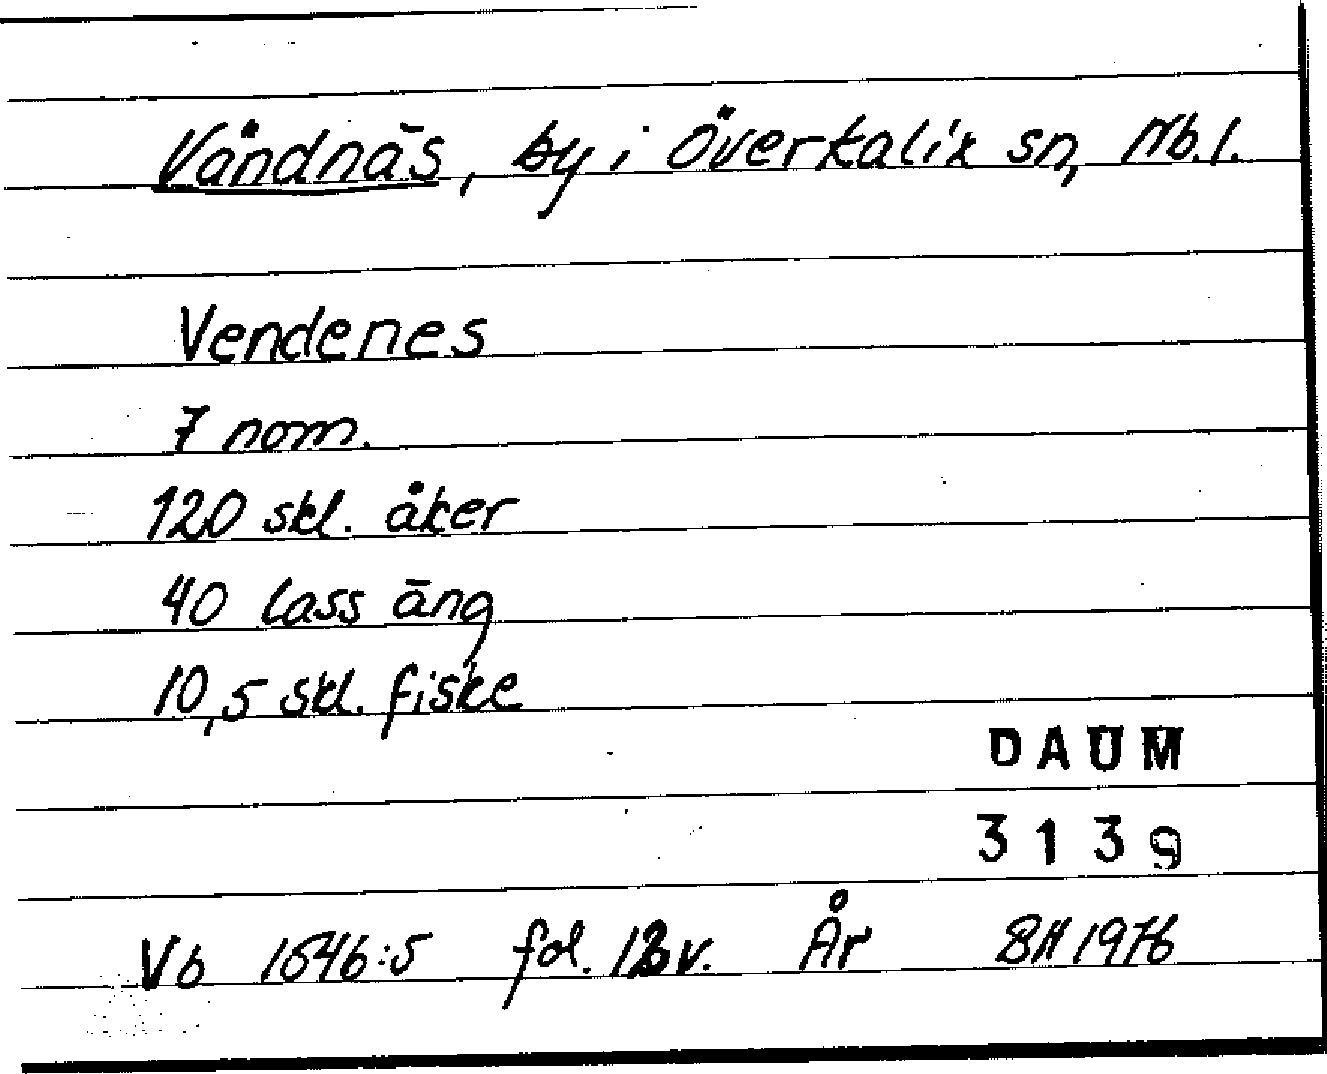 Vändnäs, by i Överkalix sn, Nb.l.
Vendenes
7 nom.
120 skl. åker
40 lass äng
10,5 skl. fiske
DAUM
3139
Vb 1546:5 fol. v. År 1976